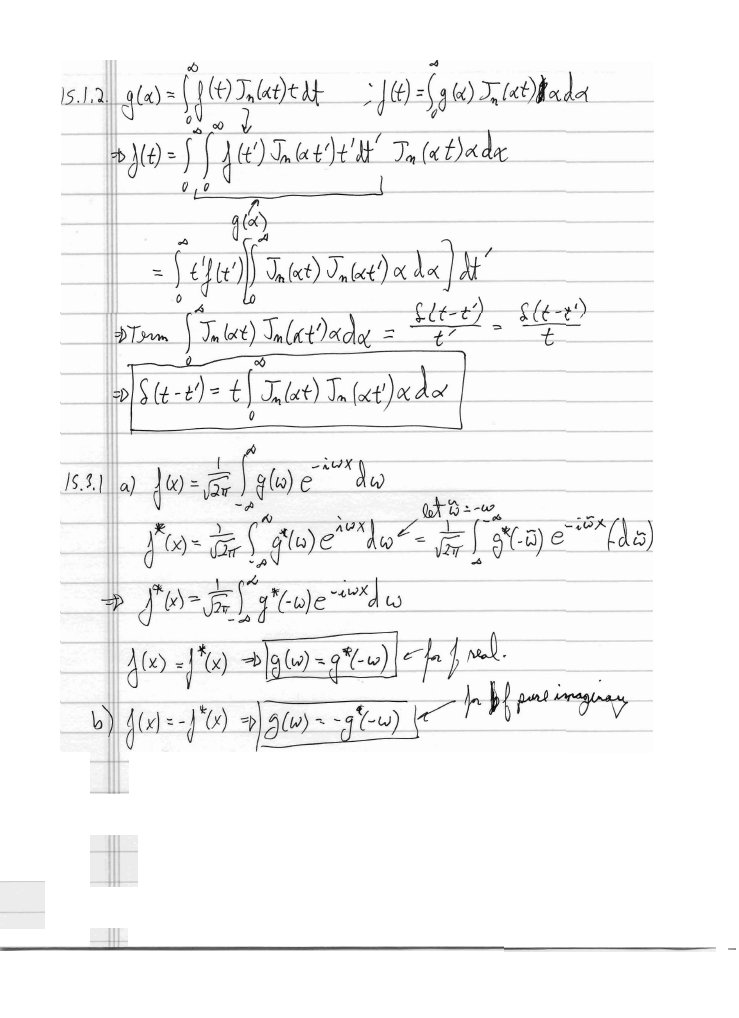 15.1.2. g(α) = ∫₀^∞ f(t) Jₙ(αt) t dt ; f(t) = ∫₀^∞ g(α) Jₙ(αt) α dα
⇒ f(t) = ∫₀^∞ ∫₀^∞ f(t') Jₙ(αt') t' dt' Jₙ(αt) α dα
g(α)
= ∫₀^∞ t' f(t') [∫₀^∞ Jₙ(αt) Jₙ(αt') α dα] dt'
⇒ Term ∫₀^∞ Jₙ(αt) Jₙ(αt') α dα = δ(t-t')/t' = δ(t-t')/t
⇒ δ(t-t') = t ∫₀^∞ Jₙ(αt) Jₙ(αt') α dα
15.3.1 a) f(x) = 1/√2π ∫_{-∞}^{∞} g(ω) e^{-iωx} dω
let ω̃ = -ω
f*(x) = 1/√2π ∫_{-∞}^{∞} g*(ω) e^{iωx} dω = 1/√2π ∫_{∞}^{-∞} g*(-ω̃) e^{-iω̃x} (-dω̃)
⇒ f*(x) = 1/√2π ∫_{-∞}^{∞} g*(-ω) e^{-iωx} dω
f(x) = f*(x) ⇒ g(ω) = g*(-ω) ← for f real.
b) f(x) = -f*(x) ⇒ g(ω) = -g*(-ω) ← for f pure imaginary